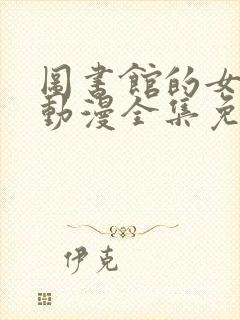 圖書館的女
動漫全集免
伊克